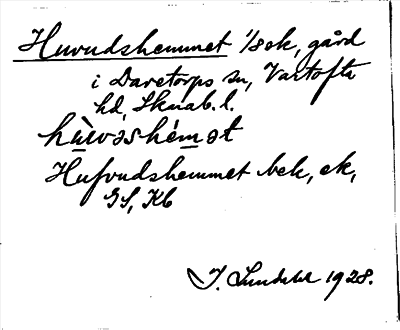 Huvudshemmet 1/8 ek, gård
i Daretorps sn, Vartofta
hd, Skarab. l.
hu̱vəshem̱ət
Hufvudshemmet bek, ek,
GS, Kb
J. Lundahl 1928.